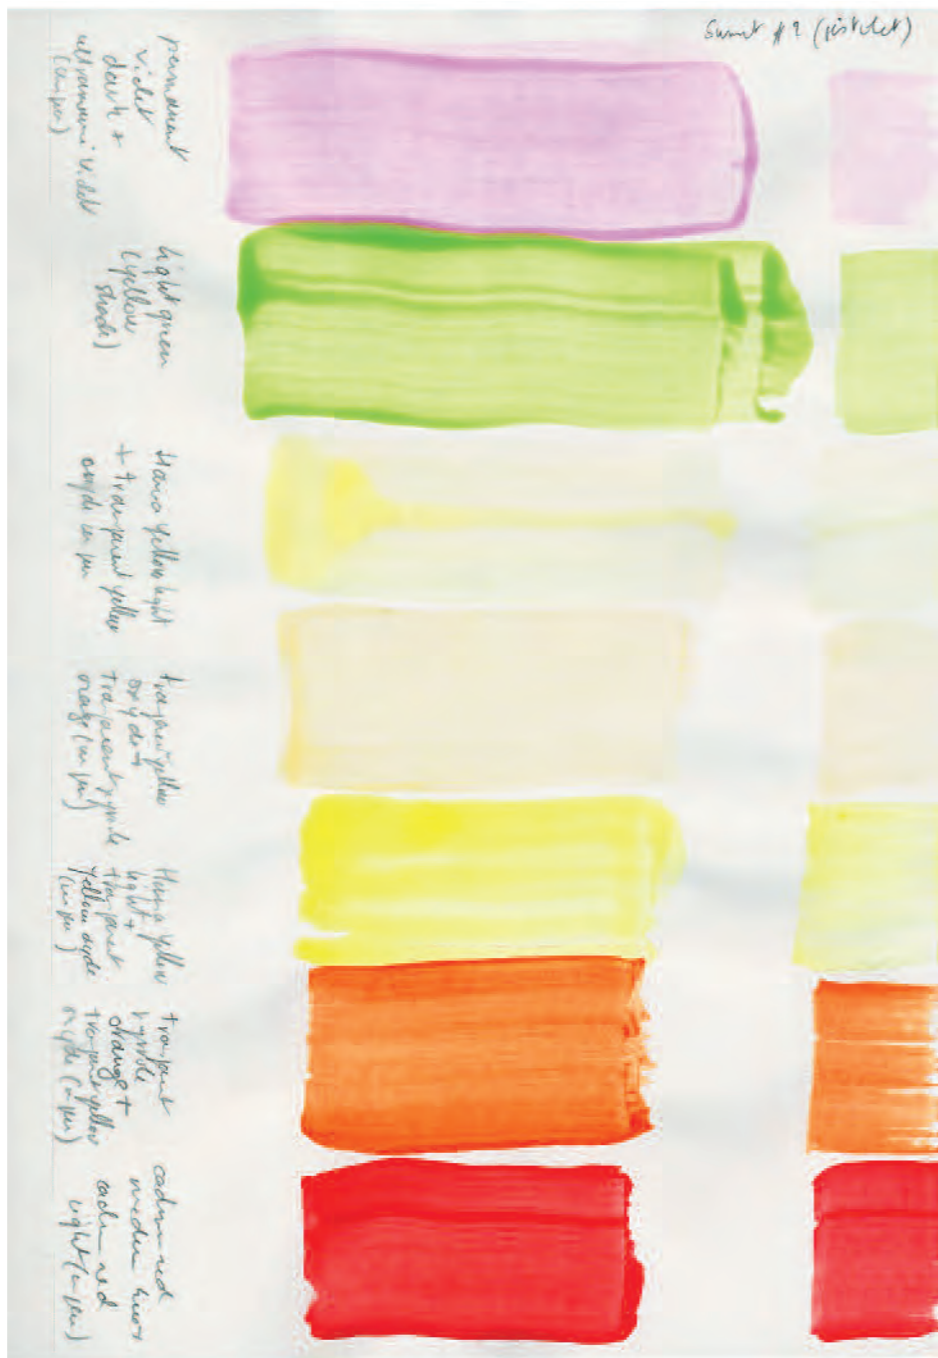 Summit #2 (pistolet)
permanent
violet
dark +
ultramarine violet
(un peu)
light green
(yellow
shade)
Hansa yellow light
+ transparent yellow
oxyde un peu
transparent yellow
oxyde +
transparent pyrrole
orage (un peu)
Hansa yellow
light +
transparent
yellow oxyde
(un peu)
transparent
pyrrole
orange +
transparent yellow
oxyde (un peu)
cadmium red
medium hue +
cadm red
light (un peu)